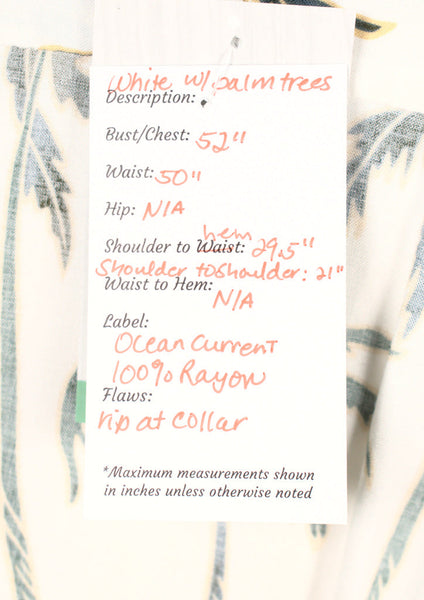 White w/ palm trees
Description:
Bust/Chest: 52"
Waist: 50"
Hip: N/A
hem
Shoulder to Waist: 29.5"
Shoulder to Shoulder: 21"
Waist to Hem:
N/A
Label:
Ocean Current
100% Rayon
Flaws:
rip at collar
*Maximum measurements shown
in inches unless otherwise noted